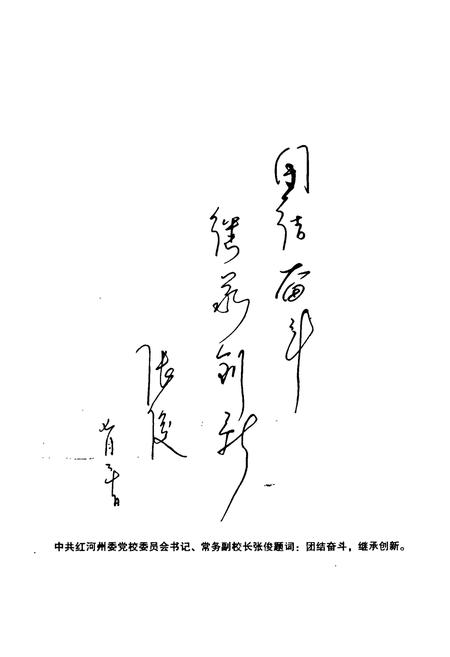 团结奋斗
继承创新
张俊
七月三十日
中共红河州委党校委员会书记、常务副校长张俊题词：团结奋斗，继承创新。